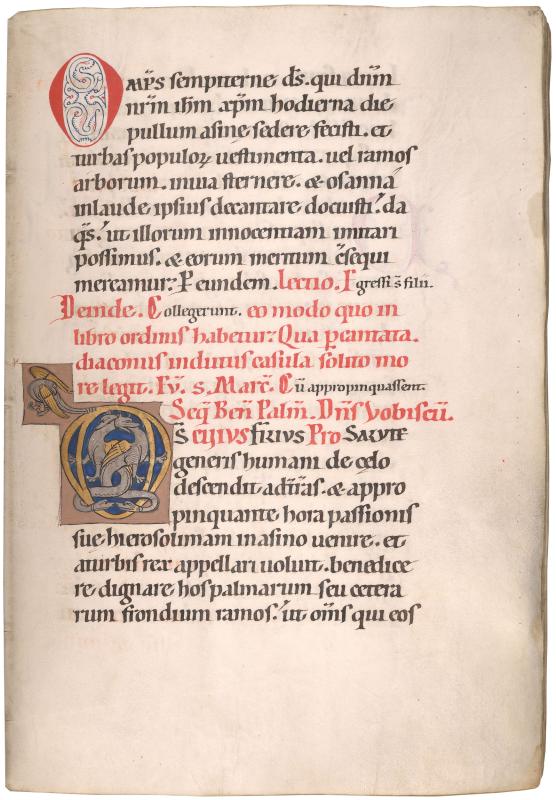 Omp̄s sempiterne d̄s. qui dn̄m
nr̄m ih̄m xp̄m hodierna die
pullum asine sedere fecisti. et
turbas populoꝝ uestimenta. uel ramos
arborum. inuia sternere. & osanna
inlaude ipsius decantare docuisti. da
qs̄. ut illorum innocentiam imitari
possimus. & eorum meritum c̄sequi
mereamur. P eundem. Lectio. Egressi s̄ filii.
Deinde. Collegerunt. eo modo quo in
libro ordinis habetur. Qua p̄cantata.
diaconus indutus casula solito mo
re legit. Eu. s. Marc̄. Cū appropinquassent.
Seq̄ Ben̄ Palm̄. Dn̄s Vobiscū.
Ds̄ CUIVS FILIVS PRO SALVTE
generis humani de celo
descendit adt̄ras. & appro
pinquante hora passionis
sue hierosolimam in asino uenire. et
aturbis rex appellari uoluit. benedice
re dignare hos palmarum seu cetera
rum frondium ramos. ut om̄s qui eos